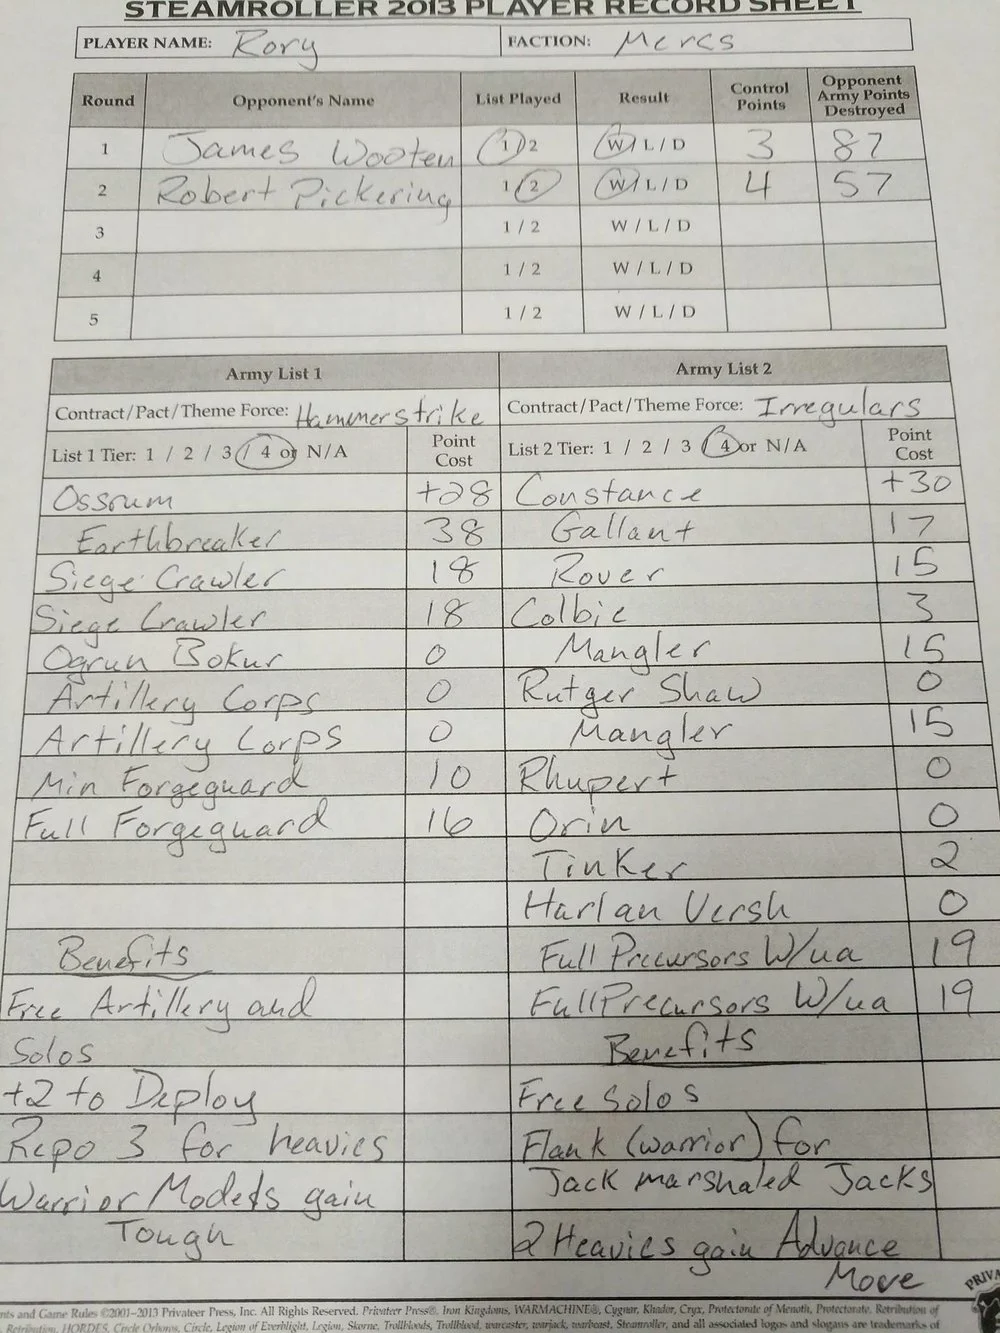 STEAMROLLER 2013 PLAYER RECORD SHEET
PLAYER NAME: Rory FACTION: Mercs
Round Opponent's Name List Played Result Control Points Opponent Army Points Destroyed
1 James Wooten 1 2 W / L / D 3 87
2 Robert Pickering 1 / 2 W / L / D 4 57
3 1 / 2 W / L / D
4 1 / 2 W / L / D
5 1 / 2 W / L / D
Army List 1 Army List 2
Contract/Pact/Theme Force: Hammerstrike Contract/Pact/Theme Force: Irregulars
List 1 Tier: 1 / 2 / 3 / 4 or N/A Point Cost List 2 Tier: 1 / 2 / 3 4 or N/A Point Cost
Ossrum +28 Constance +30
Earthbreaker 38 Gallant 17
Siege Crawler 18 Rover 15
Siege Crawler 18 Colbie 3
Ogrun Bokur 0 Mangler 15
Artillery Corps 0 Rutger Shaw 0
Artillery Corps 0 Mangler 15
Min Forgeguard 10 Rhupert 0
Full Forgeguard 16 Orin 0
Tinker 2
Harlan Versh 0
Benefits Full Precursors W/ua 19
Free Artillery and Full Precursors W/ua 19
Solos Benefits
+2 to Deploy Free Solos
Repo 3 for heavies Flank (warrior) for
Warrior Models gain Jack marshaled Jacks
Tough 2 Heavies gain Advance
Move
PRIVA
nts and Game Rules ©2001–2013 Privateer Press, Inc. All Rights Reserved. Privateer Press®, Iron Kingdoms, WARMACHINE®, Cygnar, Khador, Cryx, Protectorate of Menoth, Protectorate, Retribution of
Retribution, HORDES, Circle Orboros, Circle, Legion of Everblight, Legion, Skorne, Trollbloods, Trollblood, warcaster, warjack, warbeast, Steamroller, and all associated logos and slogans are trademarks of